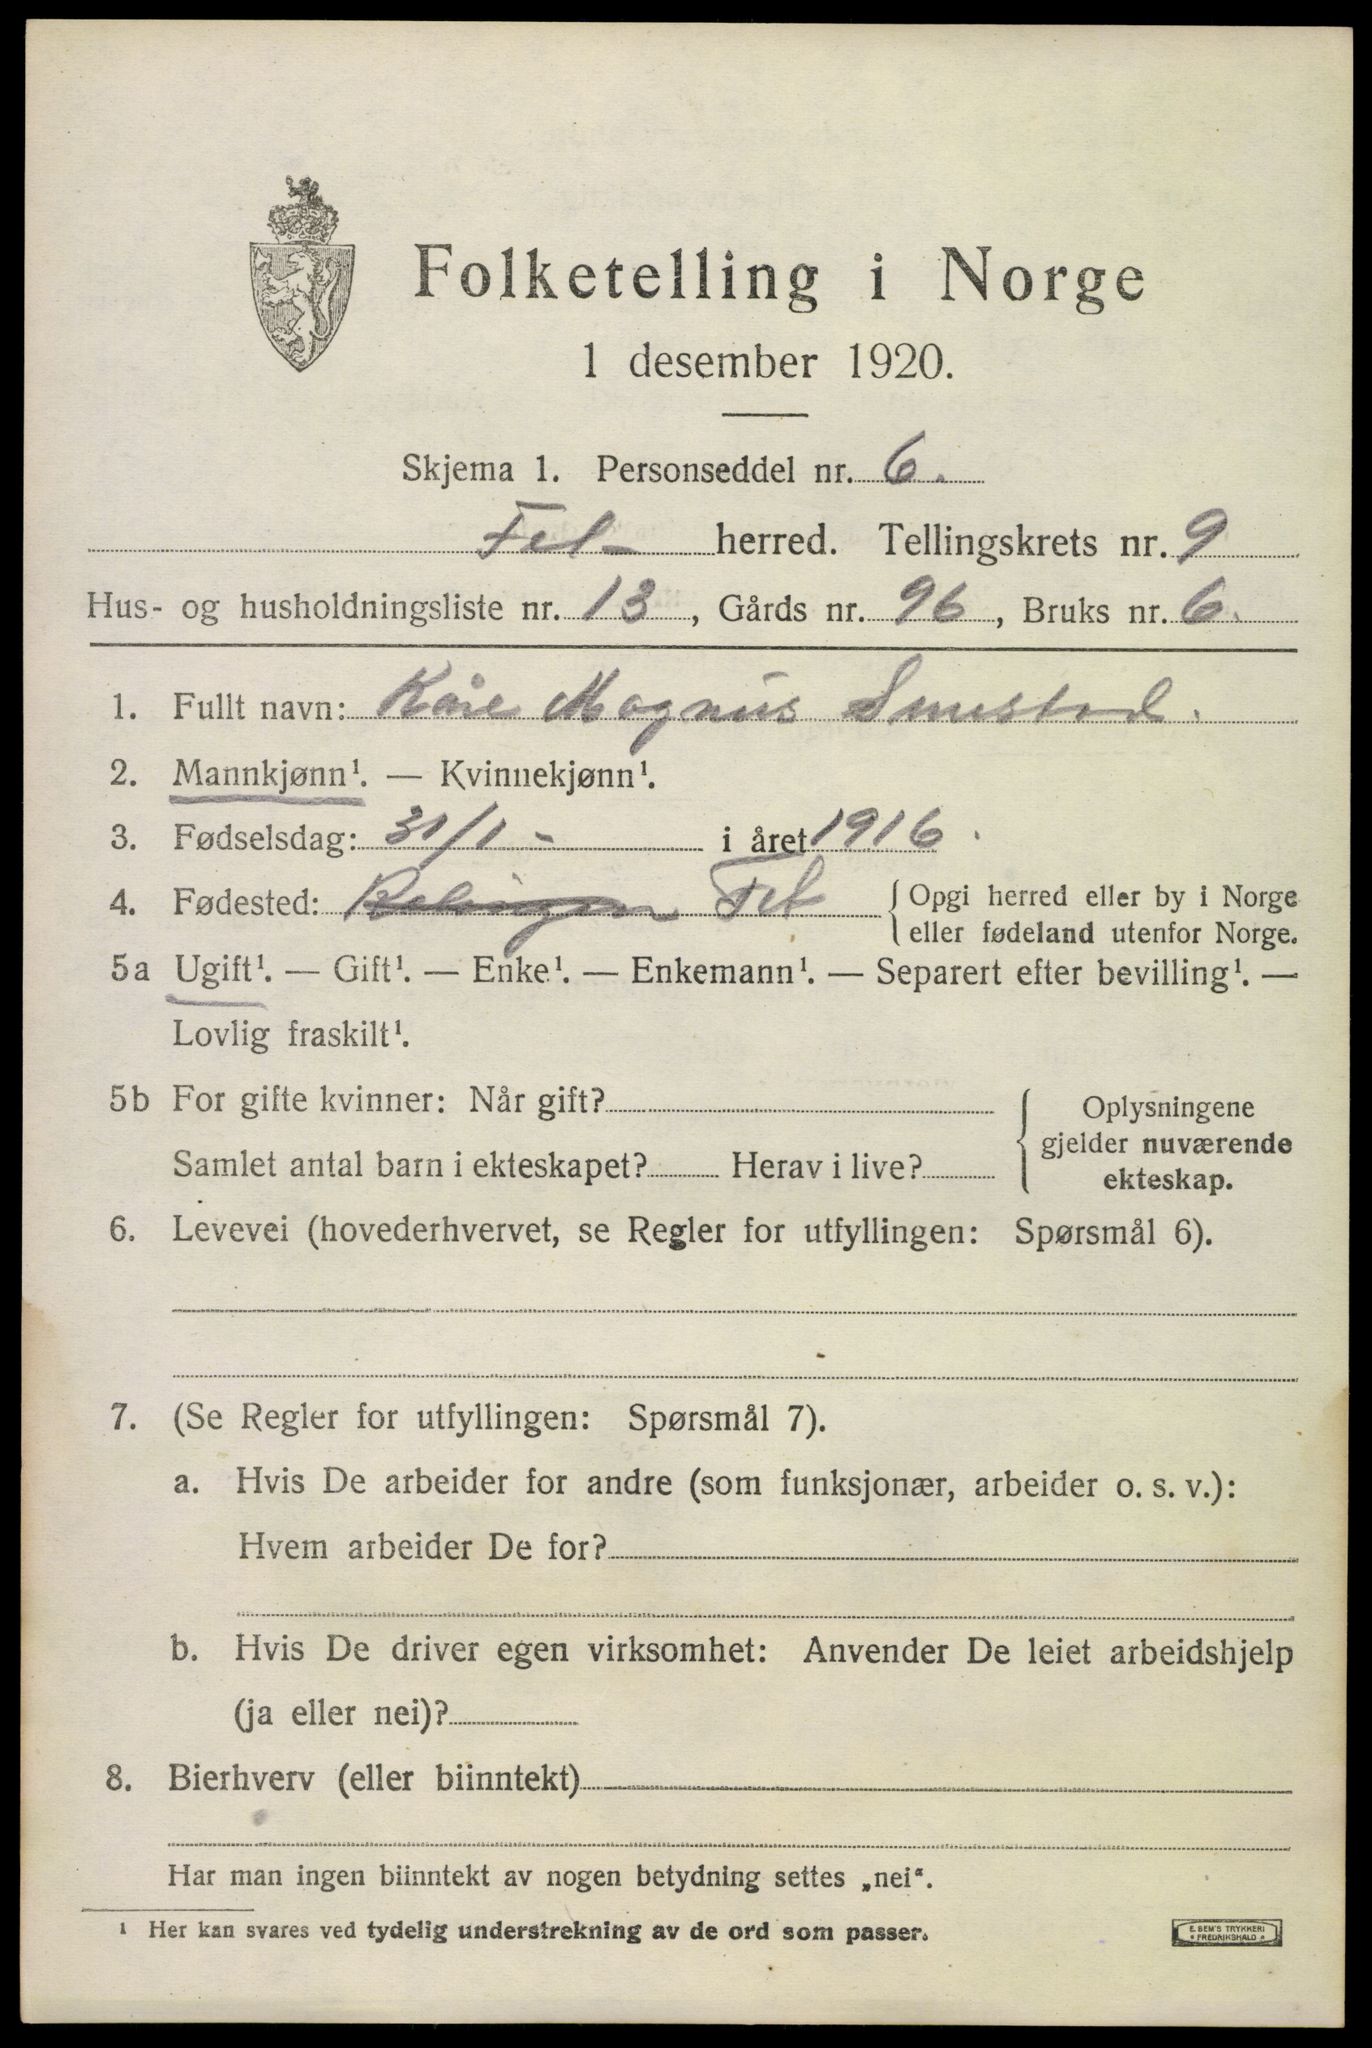 Folketelling i Norge
1 desember 1920.
Skjema 1. Personseddel nr. 6.
Fet herred. Tellingskrets nr. 9
Hus- og husholdningsliste nr. 13, Gårds nr. 96, Bruks nr. 6.
1. Fullt navn: Kåre Magnus Smestad.
2. Mannkjønn¹. — Kvinnekjønn¹.
3. Fødselsdag: 31/1 - i året 1916.
4. Fødested: Fet { Opgi herred eller by i Norge
eller fødeland utenfor Norge.
5a Ugift¹. — Gift¹. — Enke¹. — Enkemann¹. — Separert efter bevilling¹. —
Lovlig fraskilt¹.
5b For gifte kvinner: Når gift?
Samlet antal barn i ekteskapet? Herav i live?
{ Oplysningene
gjelder nuværende
ekteskap.
6. Levevei (hovederhvervet, se Regler for utfyllingen: Spørsmål 6).
7. (Se Regler for utfyllingen: Spørsmål 7).
a. Hvis De arbeider for andre (som funksjonær, arbeider o. s. v.):
Hvem arbeider De for?
b. Hvis De driver egen virksomhet: Anvender De leiet arbeidshjelp
(ja eller nei)?
8. Bierhverv (eller biinntekt)
Har man ingen biinntekt av nogen betydning settes „nei“.
¹ Her kan svares ved tydelig understrekning av de ord som passer.
E. SEM'S TRYKKERI
* FREDRIKSHALD *